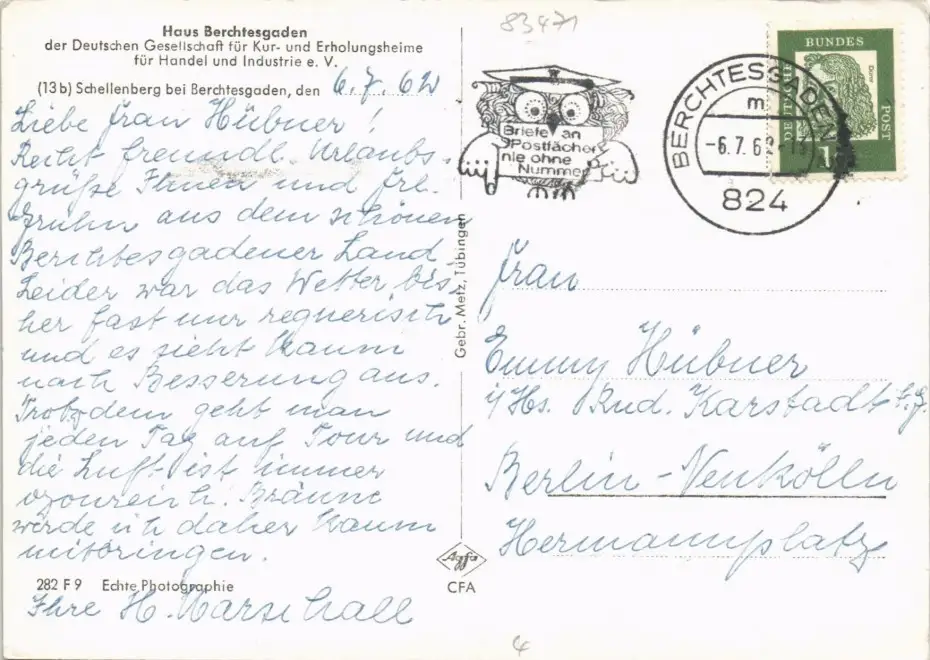 83471
Haus Berchtesgaden
der Deutschen Gesellschaft für Kur- und Erholungsheime
für Handel und Industrie e. V.
(13b) Schellenberg bei Berchtesgaden, den 6.7.62
Liebe Frau Hübner!
Recht freundl. Urlaubs-
grüße Ihnen und Frl.
Gruhn aus dem schönen
Berchtesgadener Land.
Leider war das Wetter bis-
her fast nur regnerisch
und es sieht kaum
nach Besserung aus.
Trotzdem geht man
jeden Tag auf Tour und
die Luft ist immer
ozonreich! Bräune
werde ich daher kaum
mitbringen.
282 F 9 Echte Photographie
Ihre H. Marschall
Gebr. Metz, Tübingen
Agfa
CFA
Briefe an
Postfächer
nie ohne
Nummer
BERCHTESGADEN
m
-6.7.62-13
824
DEUTSCHE
BUNDES
POST
Dürer
1
Frau
Emmy Hübner
i/Hs. Rud. Karstadt A.G.
Berlin-Neukölln
Hermannplatz
4